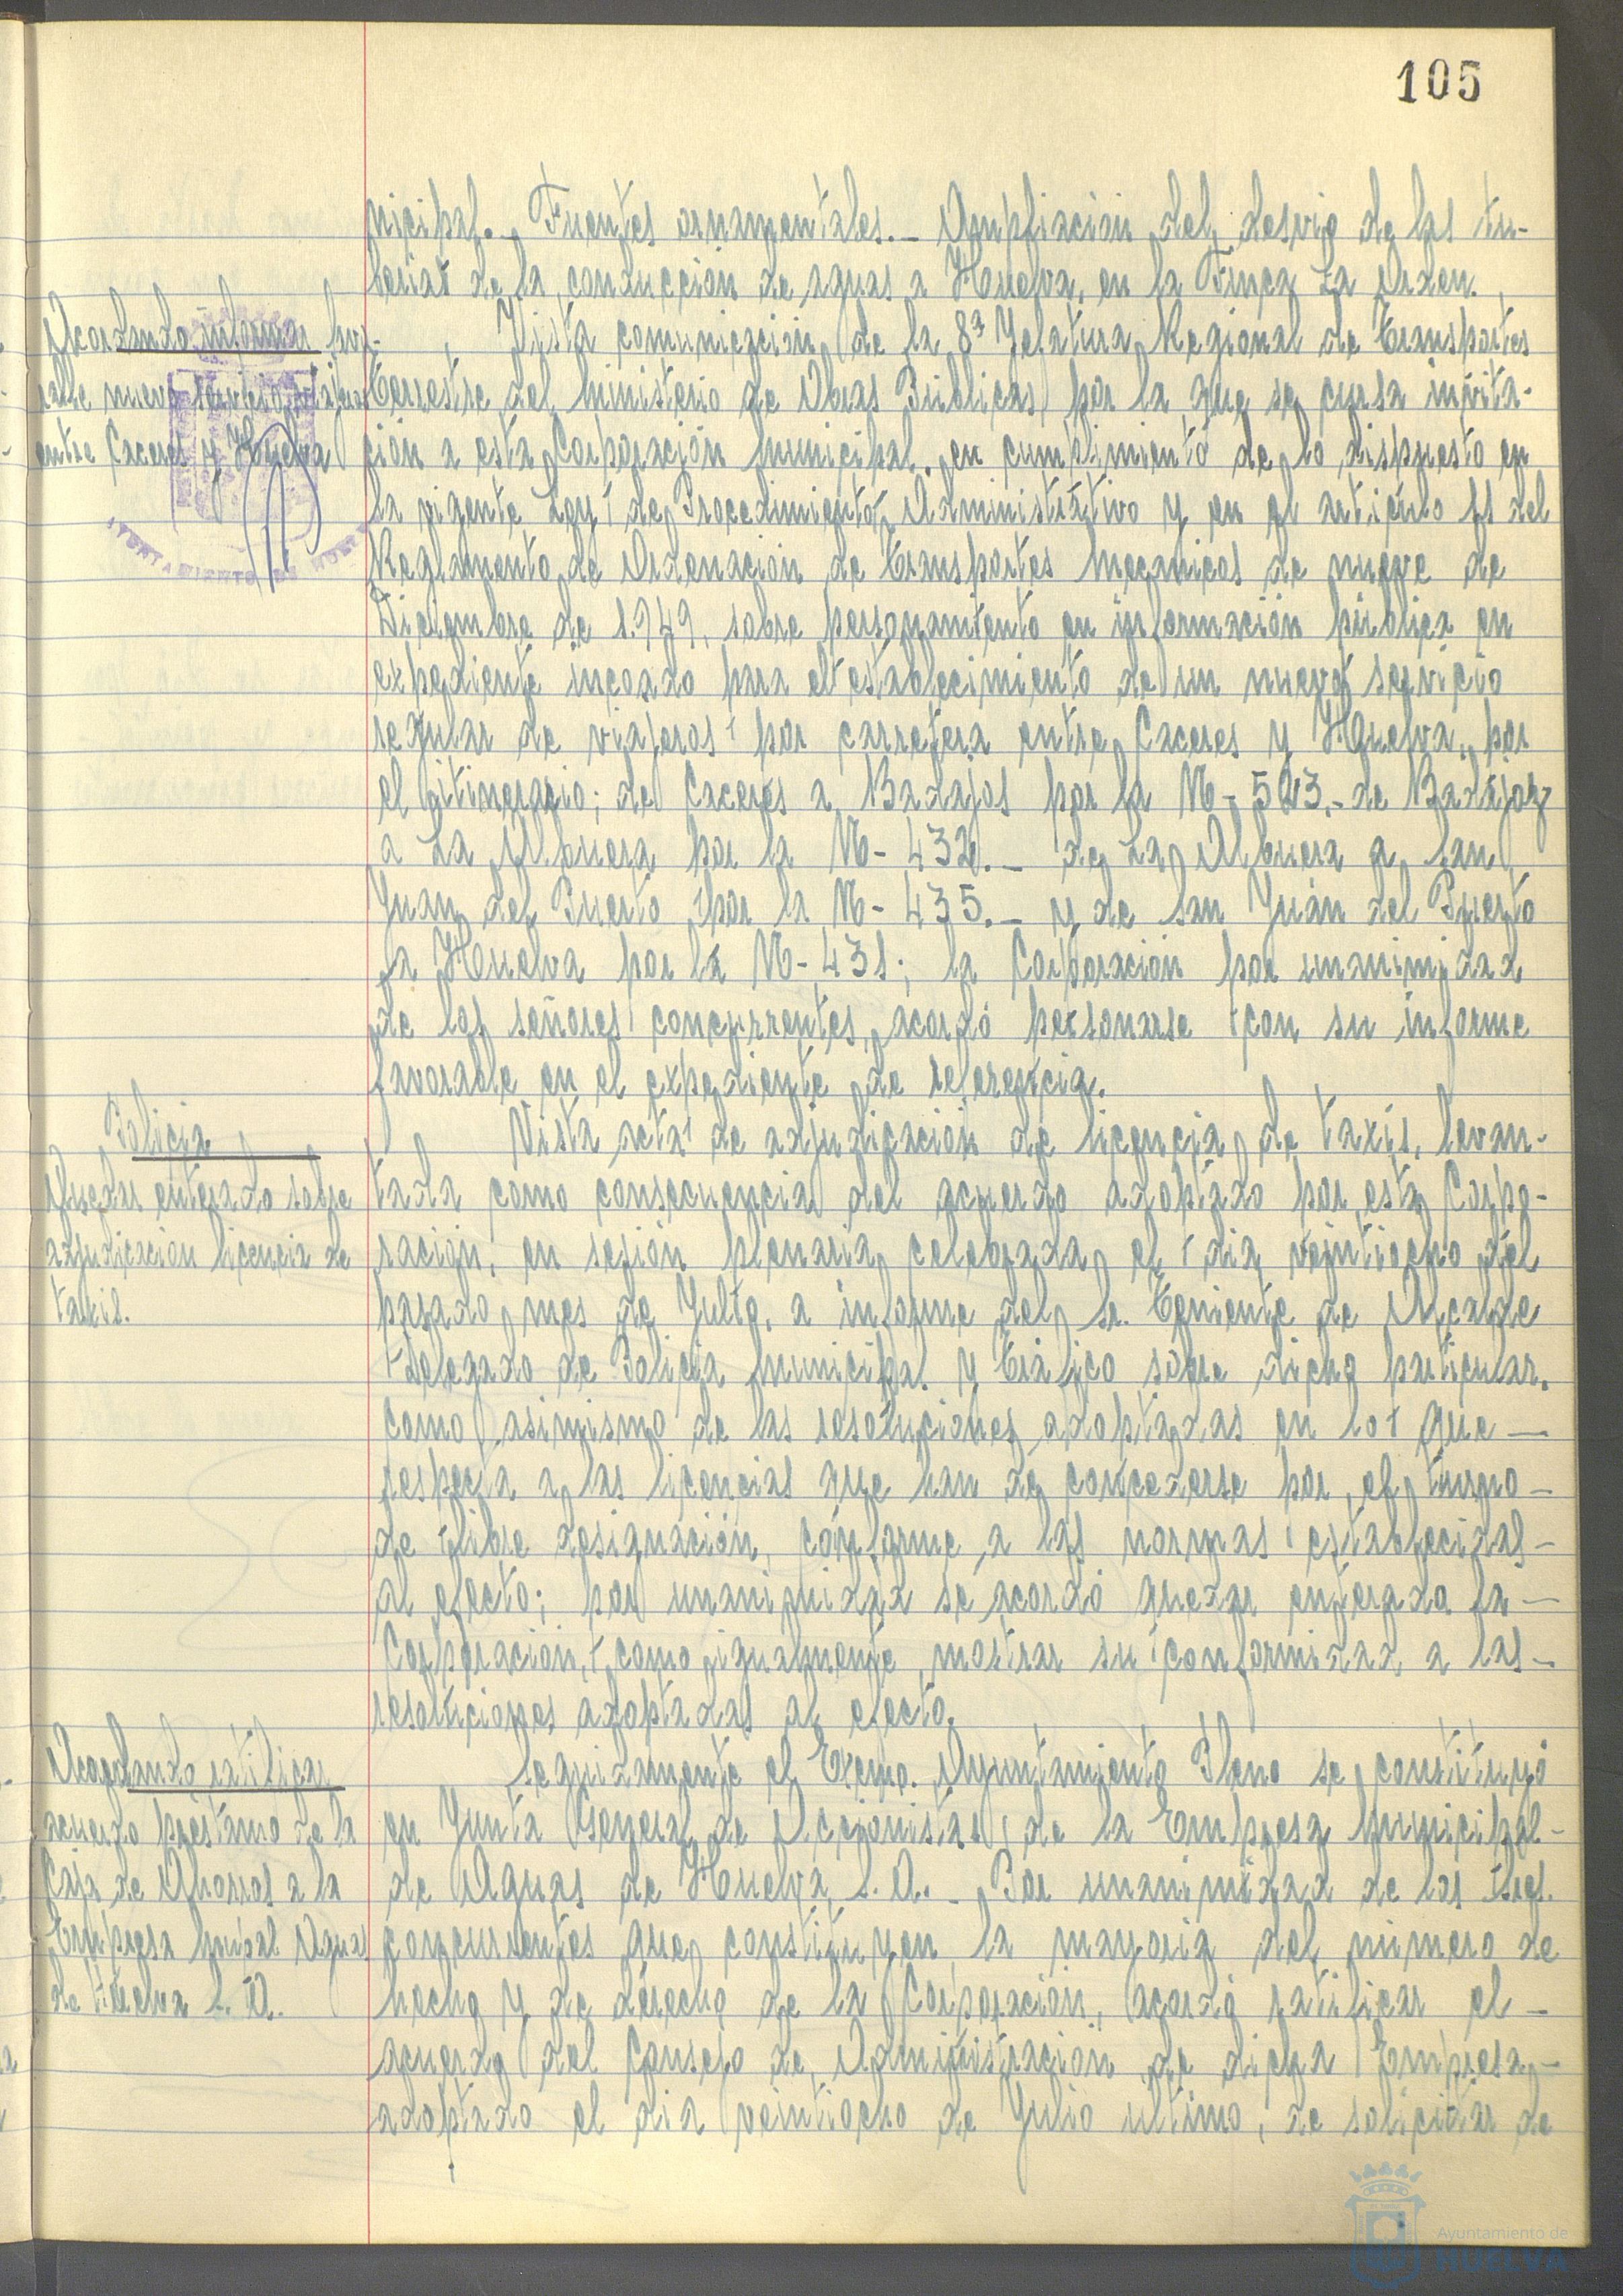 105
nicipal.- Fuentes ornamentales.- Ampliación del desvio de las tu-
berias de la conducción de aguas a Huelva, en la Finca La Orden.
Acordando informar favo-
rable nuevo servicio viajeros
entre Caceres y Huelva
Vista comunicación de la 8ª Jefatura Regional de Transportes
Terrestre del Ministerio de Obras Públicas por la que se cursa invita-
ción a esta Corporación Municipal, en cumplimiento de lo dispuesto en
la vigente Ley de Procedimiento Administrativo y en el articulo 11 del
Reglamento de Ordenación de Transportes Mecanicos de nueve de
Diciembre de 1.949, sobre personamiento en información pública en
expediente incoado para el establecimiento de un nuevo servicio
regular de viajeros por carretera entre Caceres y Huelva, por
el itinerario; de Caceres a Badajos por la N-523.- de Badajoz
a La Albuera por la N-432.- de La Albuera a San
Juan del Puerto por la N-435.- y de San Juán del Puerto
a Huelva por la N-431; la Corporación por unanimidad
de los señores concurrentes, acordó personarse con su informe
favorable en el expediente de referencia.
Policia
Quedar enterado sobre
adjudicacion licencia de
taxis.
Vista acta de adjudicación de licencia de taxis, levan-
tada como consecuencia del acuerdo adoptado por esta Corpo-
ración, en sesión plenaria celebrada el dia veintiocho del
pasado mes de Julio, a informe del Sr. Teniente de Alcalde
Delegado de Policia Municipal y Tráfico sobre dicho particular,
como asimismo de las resoluciones adoptadas en lo que —
respecta a las licencias que han de concederse por el turno —
de libre designación, conforme a las normas establecidas —
al efecto; por unanimidad se acordó quedar enterada la —
Corporación, como igualmente mostrar su conformidad a las —
resoluciones adoptadas al efecto.
Acordando ratificar
acuerdo préstamo de la
Caja de Ahorros a la
Empresa Munpal Aguas
de Huelva S.A.
Seguidamente el Excmo. Ayuntamiento Pleno se constituyó
en Junta General de Accionistas de la Empresa Municipal —
de Aguas de Huelva, S.A.- Por unanimidad de los Sres.
concurrentes que constituyen la mayoria del número de
hecho y de derecho de la Corporación, acordó ratificar el —
acuerdo del Consejo de Administración de dicha Empresa —
adoptado el dia veintiocho de Julio último, de solicitar de
Ayuntamiento de
HUELVA